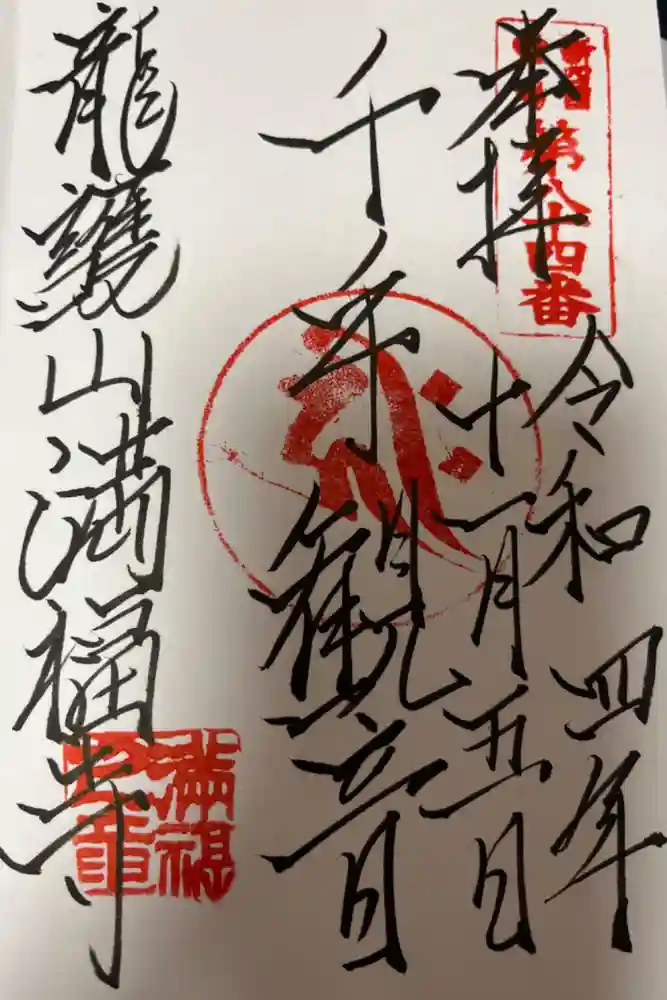 奉拝
第八十四番
令和四年
十一月五日
千手観音
龍護山満福寺
満福